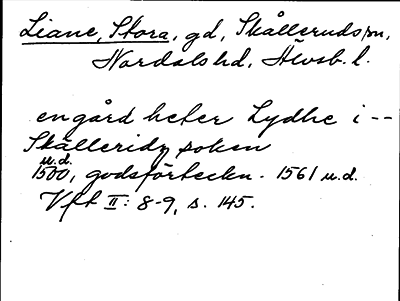 Liane, Stora, gd, Skålleruds sn,
Nordals hd, Älvsb. l.
en gård heter Lydhe i --
Skålleridz soken
u.d.
1500, godsförteckn. 1561 u.d.
Vft II: 8-9, s. 145.